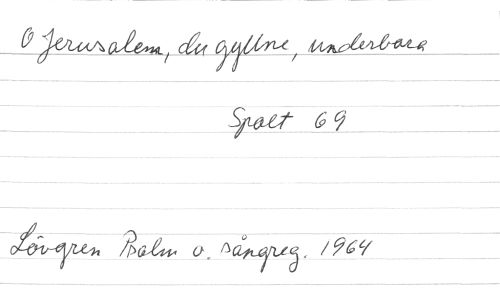 O Jerusalem, du gyllne, underbara
Spalt 69
Lövgren Psalm o. sångreg. 1964